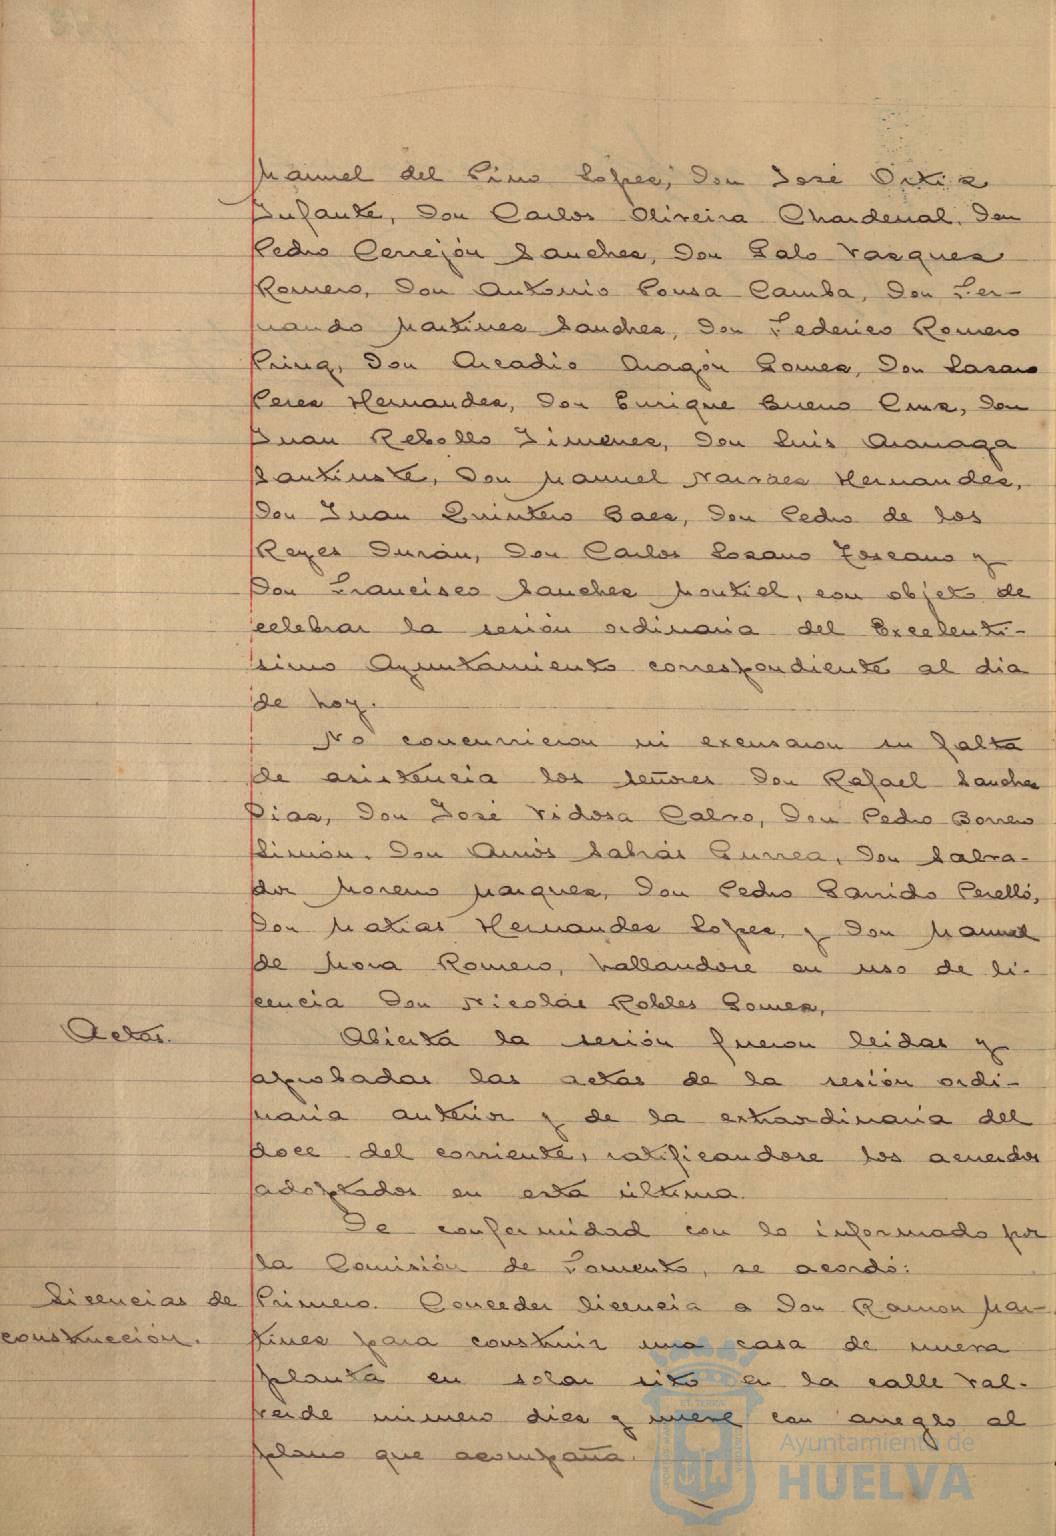 Manuel del Pino Lopez, Don José Ortiz
Infante, Don Carlos Oliveira Chardenal, Don
Pedro Cerrejón Sanchez, Don Galo Vazquez
Romero, Don Antonio Pousa Camba, Don Fer-
nando Martinez Sanchez, Don Federico Romero
Don Arcadio Aragón Gomez, Don Lazaro
Perez Hernandez, Don Enrique Bueno Cruz, Don
Juan Rebollo Jimenez, Don Luis
Don Manuel Narvaez Hernandez,
Don Juan Quintero Baez, Don Pedro de los
Reyes Durán, Don Carlos Lozano Toscano y
Don Francisco Sanchez Montiel, con objeto de
celebrar la sesión ordinaria del Excelenti-
simo Ayuntamiento correspondiente al dia
de hoy.
No concurrieron ni excusaron su falta
de asistencia los señores Don Rafael Sanchez
Diaz, Don José Vidosa Calvo, Don Pedro Borrero
Limón, Don Amós Sabrás Gurrea, Don Salva-
dor Moreno Marquez, Don Pedro Garrido Perelló,
Don Matias Hernandez Lopez, y Don Manuel
de Mora Romero, hallandose en uso de li-
cencia Don Nicolás Robles Gomez,
Actas.
Abierta la sesión fueron leidas y
aprobadas las actas de la sesión ordi-
naria anterior y de la extraordinaria del
doce del corriente, ratificandose los acuerdos
adoptados en esta última.
De conformidad con lo informado por
la Comisión de Fomento, se acordó:
Licencias de
construcción.
Primero. Conceder licencia a Don Ramon Mar-
tinez para construir una casa de nueva
planta en solar sito en la calle Val-
verde número diez y nueve con arreglo al
plano que acompaña.
Ayuntamiento de
HUELVA